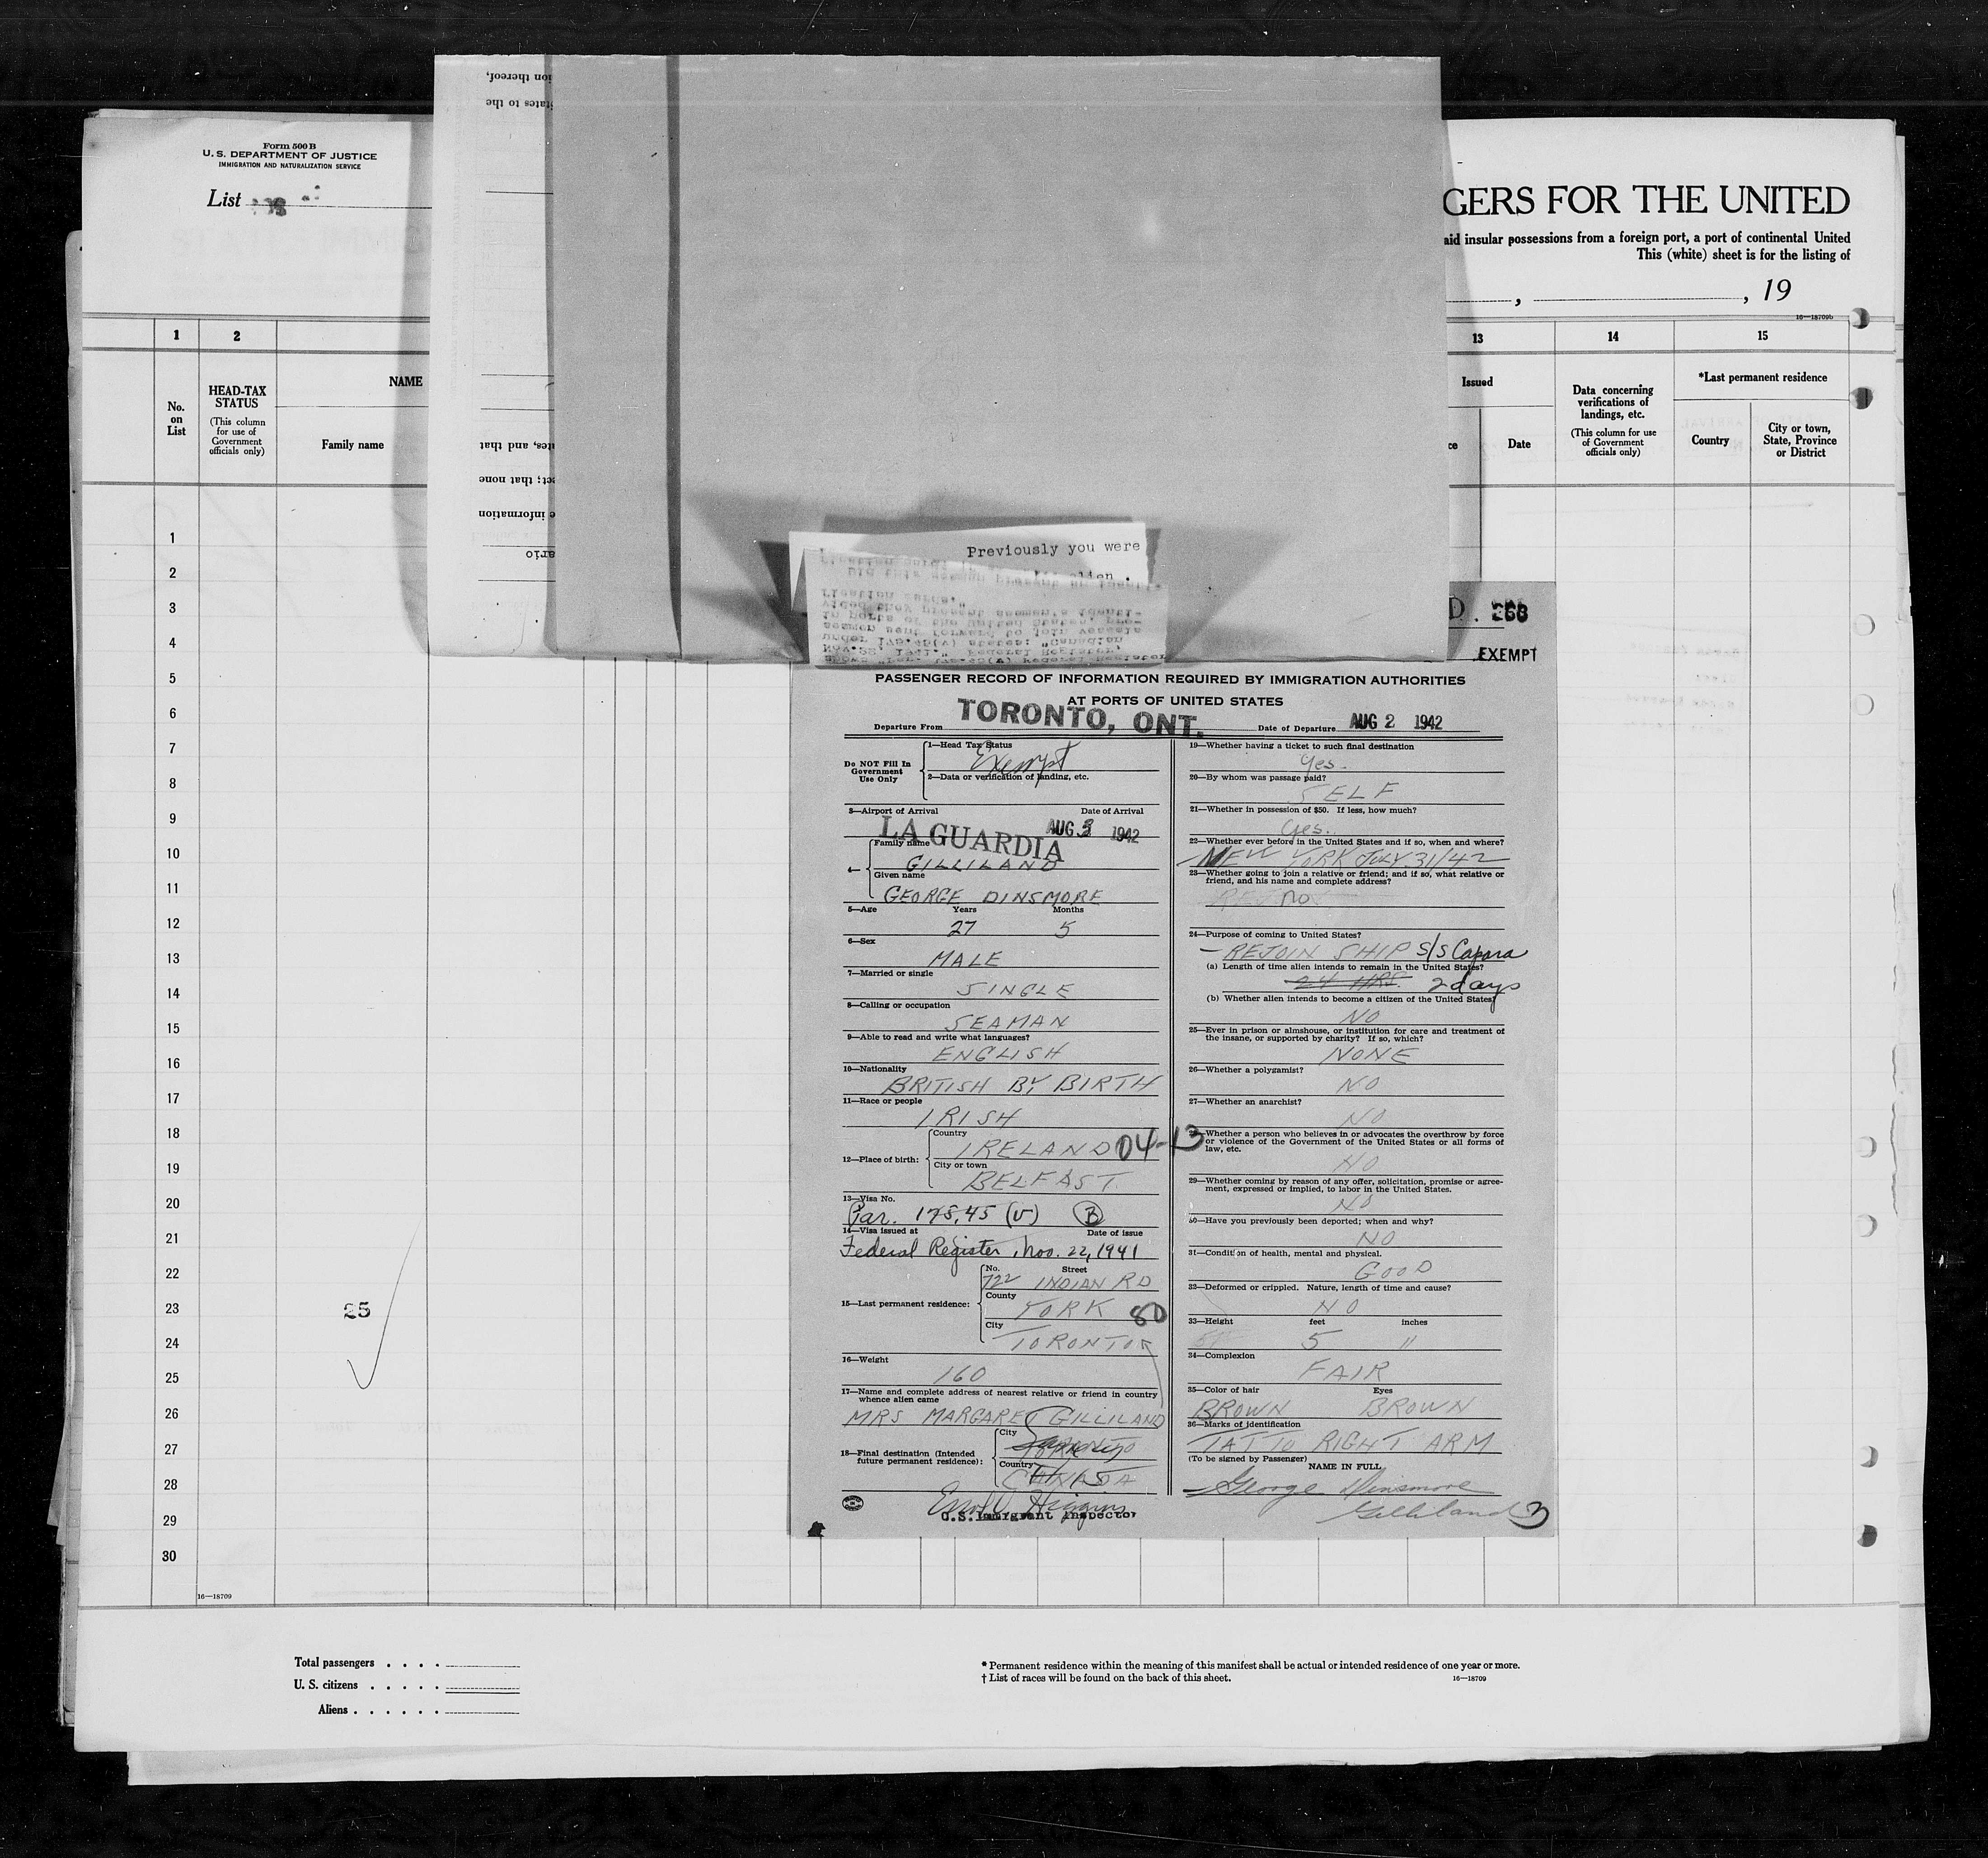 Form 500 B
U. S. DEPARTMENT OF JUSTICE
IMMIGRATION AND NATURALIZATION SERVICE
List
GERS FOR THE UNITED
aid insular possessions from a foreign port, a port of continental United
This (white) sheet is for the listing of
, , 19
16—18709b
1 2 13 14 15
No. on List
HEAD-TAX STATUS
(This column for use of Government officials only)
NAME
Family name
Issued
Date
Data concerning verifications of landings, etc.
(This column for use of Government officials only)
*Last permanent residence
Country
City or town, State, Province or District
ion thereof,
tates to the
tes, and that
ct; that none
e information
ario
Previously you were
1
2
3
4
5
6
7
8
9
10
11
12
13
14
15
16
17
18
19
20
21
22
23
24
25
26
27
28
29
30
25
D. 268
EXEMPT
PASSENGER RECORD OF INFORMATION REQUIRED BY IMMIGRATION AUTHORITIES
AT PORTS OF UNITED STATES
Departure From TORONTO, ONT. Date of Departure AUG 2 1942
Do NOT Fill In Government Use Only
1—Head Tax Status
Exempt
2—Data or verification of landing, etc.
3—Airport of Arrival Date of Arrival
LA GUARDIA AUG 3 1942
4— Family name
GILLILAND
Given name
GEORGE DINSMORE
5—Age Years Months
27 5
6—Sex
MALE
7—Married or single
SINGLE
8—Calling or occupation
SEAMAN
9—Able to read and write what languages?
ENGLISH
10—Nationality
BRITISH BY BIRTH
11—Race or people
IRISH
12—Place of birth:
Country
IRELAND 04-13
City or town
BELFAST.
13—Visa No.
Par. 175,45 (v) B
14—Visa issued at Date of issue
Federal Register, Nov. 22, 1941
15—Last permanent residence:
No. Street
722 INDIAN RD
County
YORK 80
City
TORONTO
16—Weight
160
17—Name and complete address of nearest relative or friend in country whence alien came
MRS MARGARET GILLILAND
18—Final destination (Intended future permanent residence):
City
TORONTO
Country
CANADA
Higgins
U.S. Immigrant Inspector
19—Whether having a ticket to such final destination
Yes.
20—By whom was passage paid?
SELF
21—Whether in possession of $50. If less, how much?
Yes.
22—Whether ever before in the United States and if so, when and where?
NEW YORK JULY 31/42
23—Whether going to join a relative or friend; and if so, what relative or
friend, and his name and complete address?
no
24—Purpose of coming to United States?
— REJOIN SHIP S/S Capara
(a) Length of time alien intends to remain in the United States?
24 HRS. 2 days
(b) Whether alien intends to become a citizen of the United States?
NO
25—Ever in prison or almshouse, or institution for care and treatment of
the insane, or supported by charity? If so, which?
NONE
26—Whether a polygamist?
NO
27—Whether an anarchist?
NO
28—Whether a person who believes in or advocates the overthrow by force
or violence of the Government of the United States or all forms of
law, etc.
NO
29—Whether coming by reason of any offer, solicitation, promise or agree-
ment, expressed or implied, to labor in the United States.
NO
30—Have you previously been deported; when and why?
NO
31—Condition of health, mental and physical.
GOOD
32—Deformed or crippled. Nature, length of time and cause?
NO
33—Height feet inches
5 11
34—Complexion
FAIR
35—Color of hair Eyes
BROWN BROWN
36—Marks of identification
TATTO RIGHT ARM
(To be signed by Passenger)
NAME IN FULL
George Dinsmore
Gilliland 3
16—18709
Total passengers . . . .
U. S. citizens . . . . .
Aliens . . . . . .
* Permanent residence within the meaning of this manifest shall be actual or intended residence of one year or more.
† List of races will be found on the back of this sheet.
16—18709